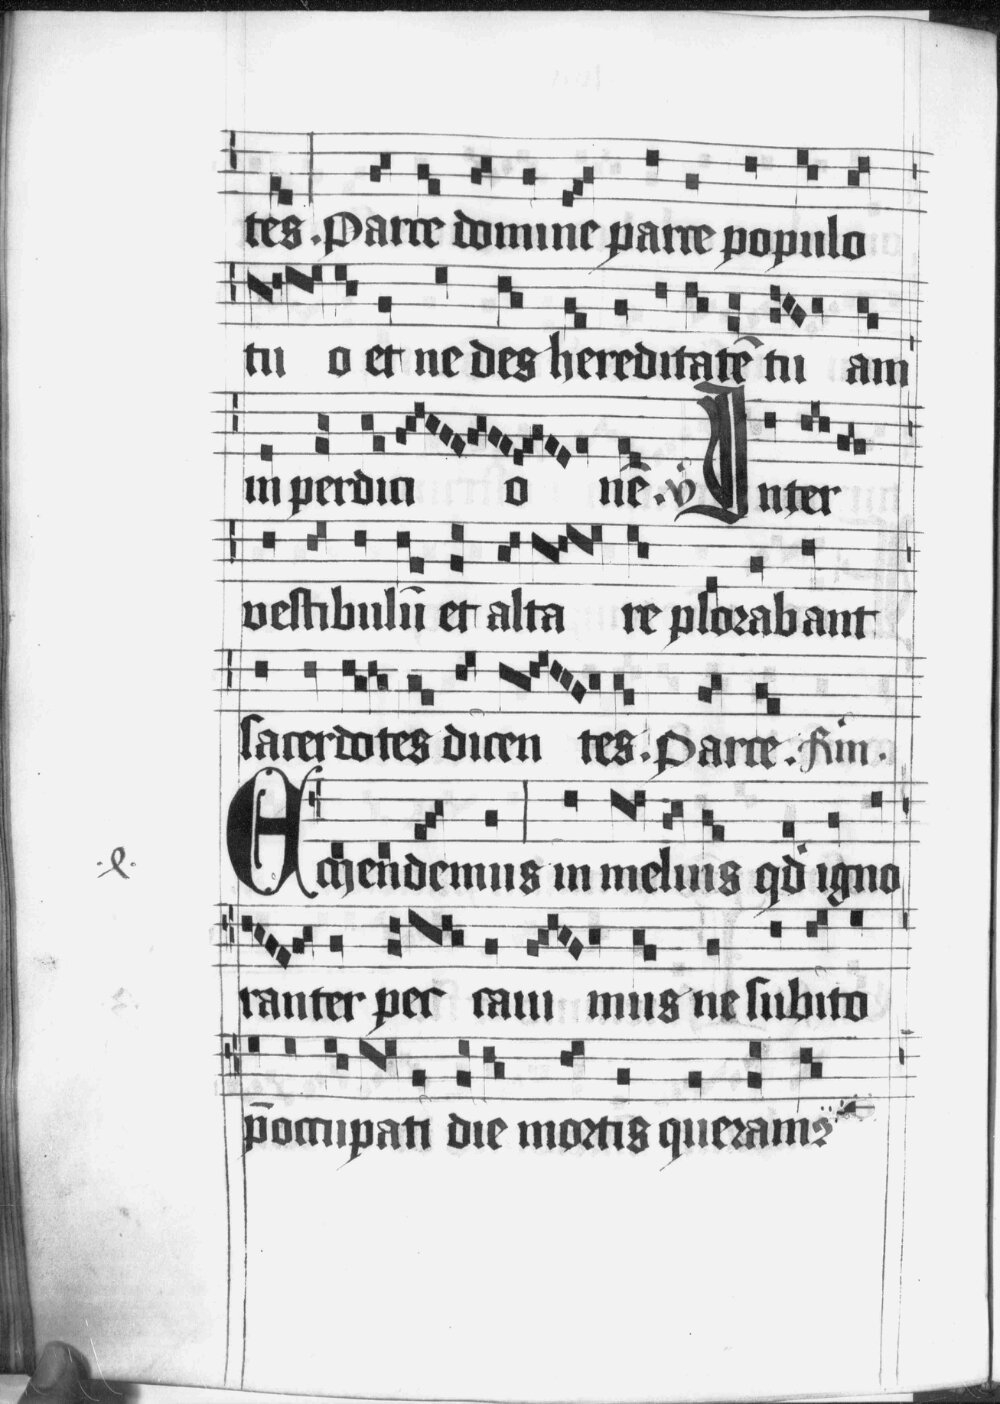 tes. Parce domine parce populo
tu o et ne des hereditatē tu am
in perdici o nē. ℣ Inter
vestibulū et alta re plorabant
sacerdotes dicen tes. Parce.
Emendemus in melius qd igno
ranter pec caui mus ne subito
p̄occupati die mortis queram9